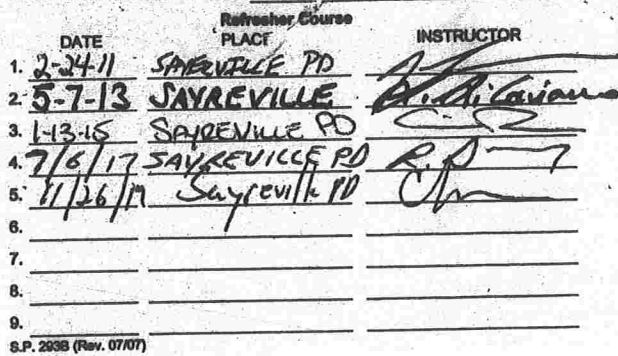 Refresher Course
DATE PLACE INSTRUCTOR
1. 2-24-11 SAYREVILLE PD
2. 5-7-13 SAYREVILLE
3. 1-13-15 SAYREVILLE PD
4. 7/6/17 SAYREVILLE PD
5. 11/26/19 Sayreville PD
6.
7.
8.
9.
S.P. 293B (Rev. 07/07)